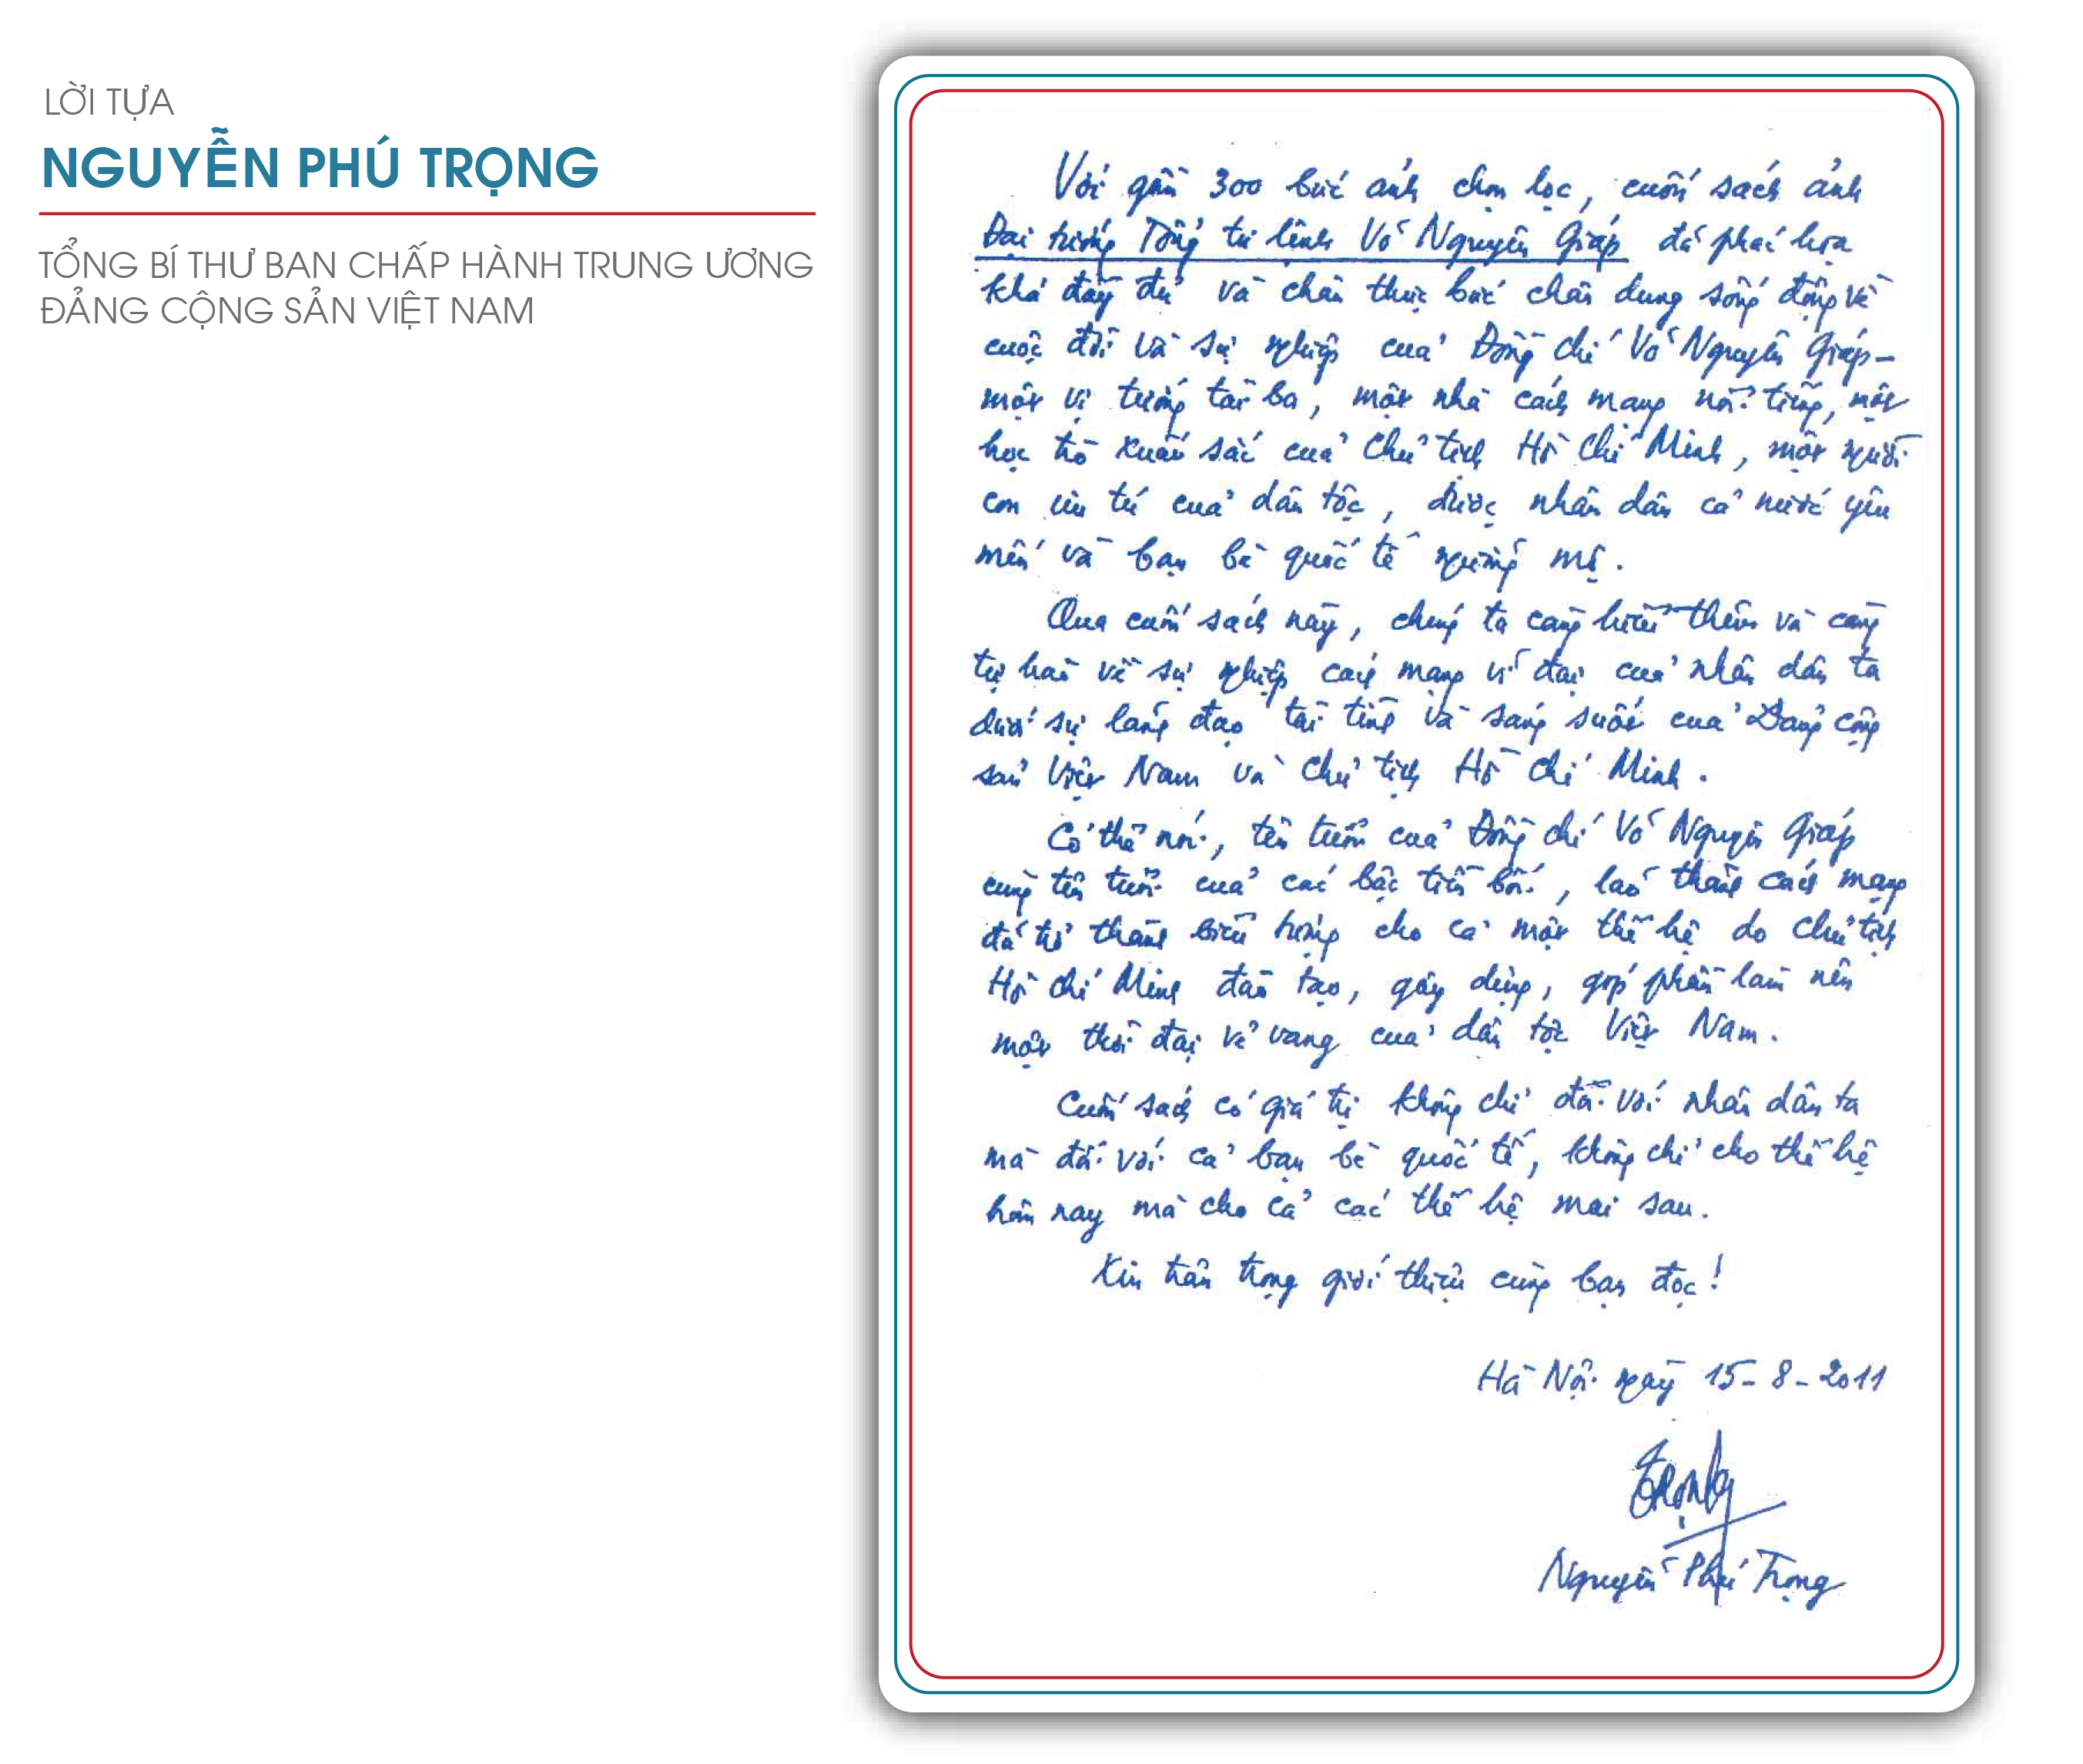 LỜI TỰA
NGUYỄN PHÚ TRỌNG
TỔNG BÍ THƯ BAN CHẤP HÀNH TRUNG ƯƠNG
ĐẢNG CỘNG SẢN VIỆT NAM
Với gần 300 bức ảnh chọn lọc, cuốn sách ảnh
Đại tướng Tổng tư lệnh Võ Nguyên Giáp đã phác họa
khá đầy đủ và chân thực bức chân dung sống động về
cuộc đời và sự nghiệp của Đồng chí Võ Nguyên Giáp -
một vị tướng tài ba, một nhà cách mạng nổi tiếng, một
học trò xuất sắc của Chủ tịch Hồ Chí Minh, một người
con ưu tú của dân tộc, được nhân dân cả nước yêu
mến và bạn bè quốc tế ngưỡng mộ.
Qua cuốn sách này, chúng ta càng hiểu thêm và càng
tự hào về sự nghiệp cách mạng vĩ đại của nhân dân ta
dưới sự lãnh đạo tài tình và sáng suốt của Đảng cộng
sản Việt Nam và Chủ tịch Hồ Chí Minh.
Có thể nói, tên tuổi của Đồng chí Võ Nguyên Giáp
cùng tên tuổi của các bậc tiền bối, lão thành cách mạng
đã trở thành biểu tượng cho cả một thế hệ do Chủ tịch
Hồ Chí Minh đào tạo, gây dựng, góp phần làm nên
một thời đại vẻ vang của dân tộc Việt Nam.
Cuốn sách có giá trị không chỉ đối với nhân dân ta
mà đối với cả bạn bè quốc tế, không chỉ cho thế hệ
hôm nay mà cho cả các thế hệ mai sau.
Xin trân trọng giới thiệu cùng bạn đọc!
Hà Nội ngày 15-8-2011
Trọng
Nguyễn Phú Trọng